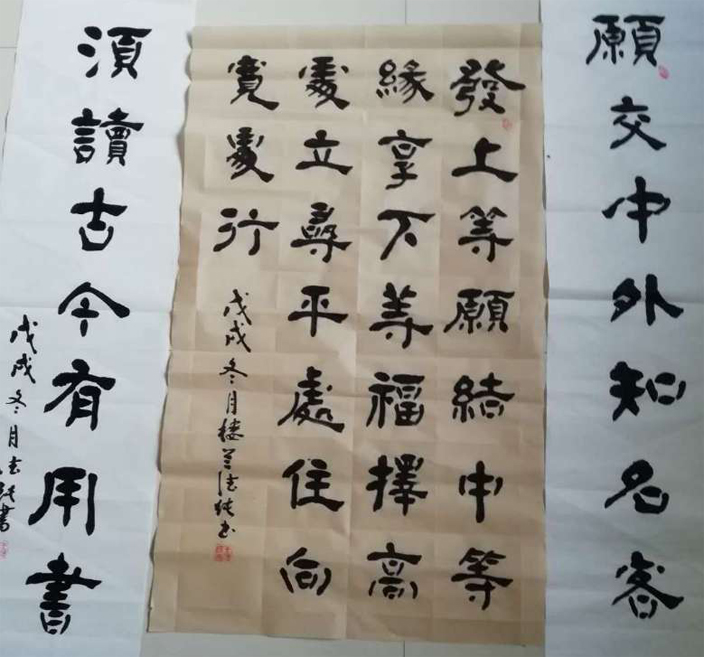 願交中外知名客
發上等願結中等
緣享下等福擇高
處立尋平處住向
寬處行
戊戌冬月楼兰书
須讀古今有用書
戊戌冬月書